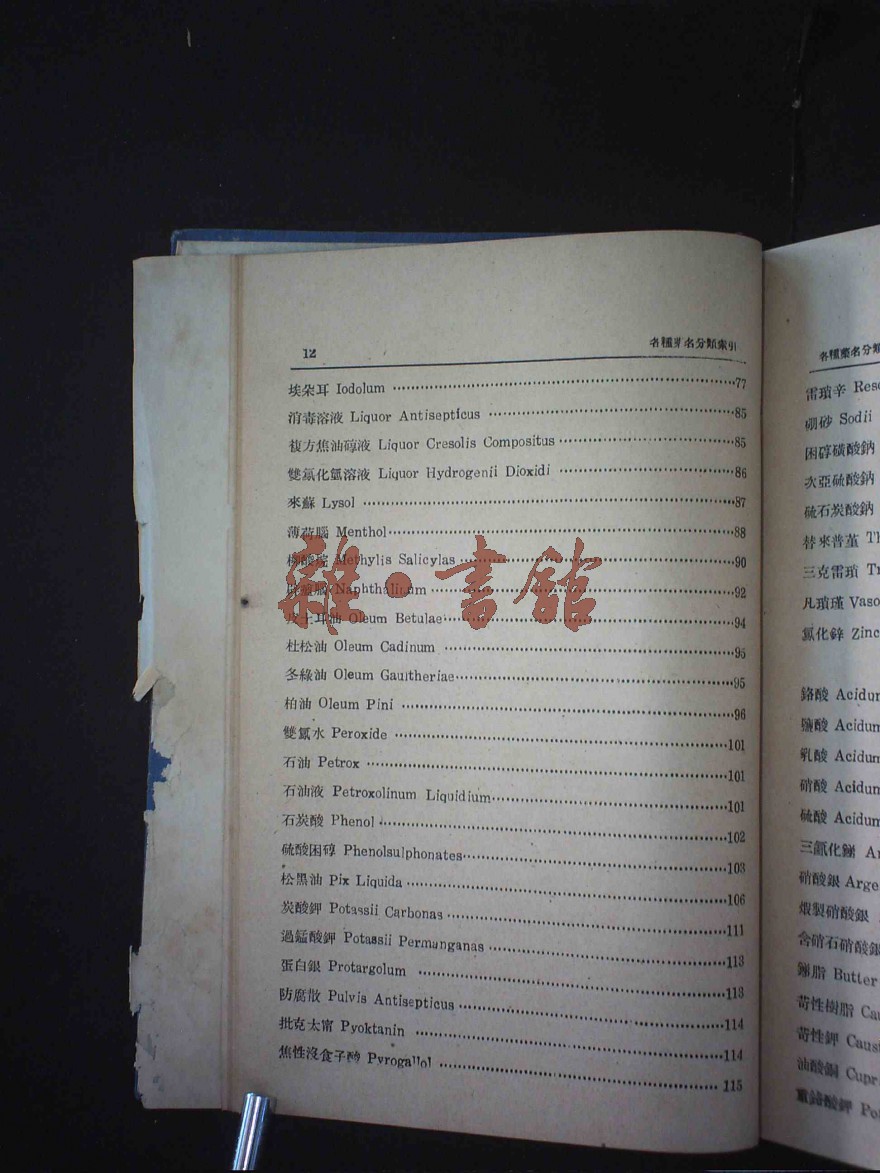 12 各種藥名分類索引
埃朵耳 Iodolum 77
消毒溶液 Liquor Antisepticus 85
複方焦油醇液 Liquor Cresolis Compositus 85
雙氯化氫溶液 Liquor Hydrogenii Dioxidi 86
來蘇 Lysol 87
薄荷腦 Menthol 88
柳酸烷 Methylis Salicylas 90
Naphthalinum 92
皮土耳油 Oleum Betulae 94
杜松油 Oleum Cadinum 95
冬綠油 Oleum Gaultheriae 95
柏油 Oleum Pini 96
雙氯水 Peroxide 101
石油 Petrox 101
石油液 Petroxolinum Liquidium 101
石炭酸 Phenol 102
硫酸困醇 Phenolsulphonates 103
松黑油 Pix Liquida 106
炭酸鉀 Potassii Carbonas 111
過錳酸鉀 Potassii Permanganas 113
蛋白銀 Protargolum 113
防腐散 Pulvis Antisepticus 114
批克太甯 Pyoktanin 114
焦性沒食子酚 Pyrogallol 115
雜·書館
各種藥名分類
雷瑣辛 Reso
硼砂 Sodii
困醇磺酸鈉
次亞硫酸鈉
硫石炭酸鈉
替來普堇 Th
三克雷瑣 Tr
凡瑣瑾 Vaso
氯化鋅 Zinc
鉻酸 Acidum
鹽酸 Acidum
乳酸 Acidum
硝酸 Acidum
硫酸 Acidum
三氯化銻 A
硝酸銀 Arge
煆製硝酸銀
含硝石硝酸銀
銻脂 Butter
苛性樹脂 Cau
苛性鉀 Causi
油酸銅 Cupr
重鉻酸鉀 Po